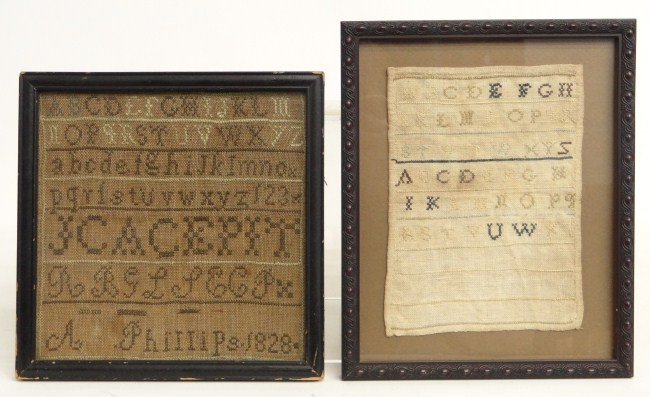 ABCDEFGHIJKLM
NOPQRSTUVWXYZ
abcdefghiJklmno
pqrfstuvwxyz123
JCACEPIT
RBGLSECP
A Phillips 1828
CDEFGH
KLM OP
ST WXYZ
A CD GH
IK NOPQ
UW